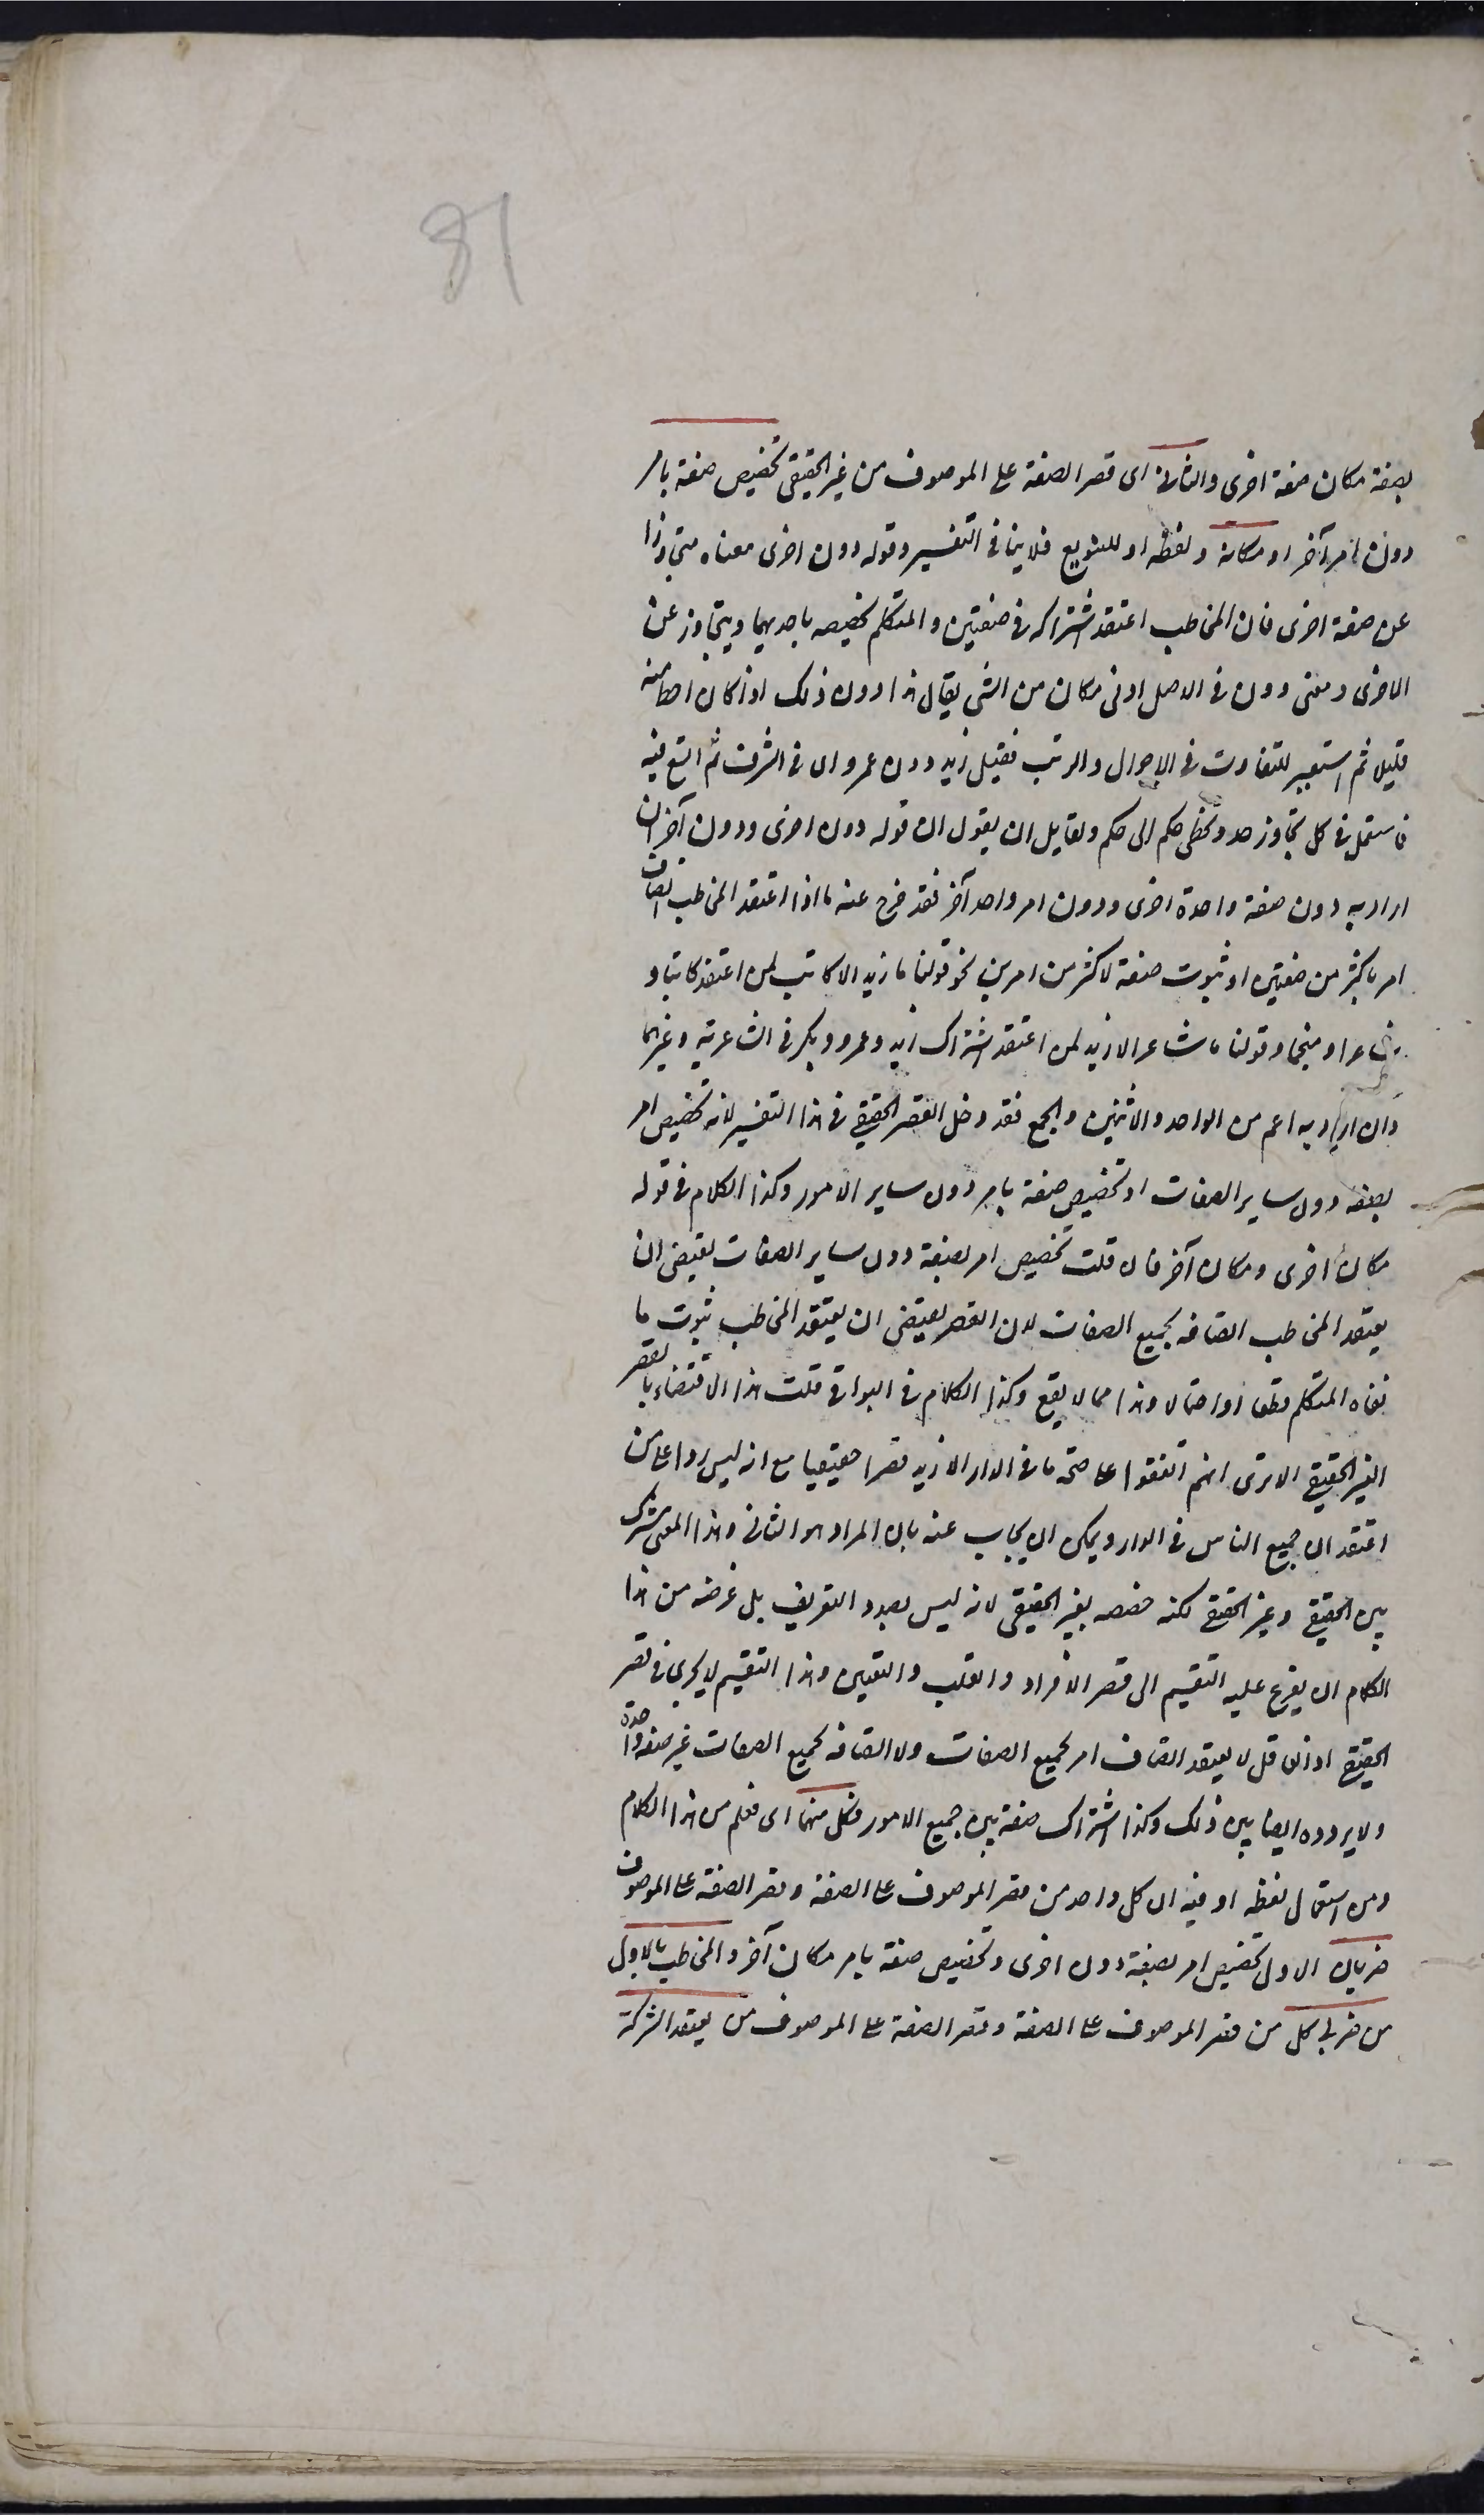 81
بصفة مكان صفة اخرى والثانى اى قصر الصفة على الموصوف من غير الحقيقى تخصيص صفة بامر
دون امر آخر او مكانه ولفظه او للتنويع فلا ينافى التفسير وقوله دون اخرى معناه متجاوزا
عن صفة اخرى فان المخاطب اعتقد اشتراكه فى صفتين والمتكلم يخصصه باحديهما ويتجاوز عن
الاخرى ومعنى دون فى الاصل ادنى مكان من الشئ يقال هذا دون ذلك اذا كان احط منه
قليلا ثم استعير للتفاوت فى الاحوال والرتب فقيل زيد دون عمرو اى فى الشرف ثم اتسع فيه
فاستعمل فى كل تجاوز حد وتخطى حكم الى حكم ولقايل ان يقول ان قوله دون اخرى ودون آخر ان
اراد به دون صفة واحدة اخرى ودون امر واحد آخر فقد خرج عنه ما اذا اعتقد المخاطب اتصاف
امر باكثر من صفتين او ثبوت صفة لاكثر من امرين نحو قولنا ما زيد الا كاتب لمن اعتقد كاتبا و
شاعرا ومنجما وقولنا ما شاعر الا زيد لمن اعتقد اشتراك زيد وعمرو وبكر فى الشاعرية وغيرهما
وان اراد به اعم من الواحد والاثنين والجمع فقد دخل القصر الحقيقى فى هذا التفسير لانه تخصيص امر
بصفة دون ساير الصفات او تخصيص صفة بامر دون ساير الامور وكذا الكلام فى قوله
مكان اخرى ومكان آخر فان قلت تخصيص امر بصفة دون ساير الصفات يقتضى ان
يعتقد المخاطب اتصافه بجميع الصفات لان القصر يقتضى ان يعتقد المخاطب ثبوت ما
نفاه المتكلم قطعا او احتمالا وهذا مما لا يقع وكذا الكلام فى البواقى قلت هذا الاقتضاء بالقصر
الغير الحقيقى الا ترى انهم اتفقوا على صحة ما فى الدار الا زيد قصرا حقيقيا مع انه ليس ردا على من
اعتقد ان جميع الناس فى الدار ويمكن ان يجاب عنه بان المراد هو الثانى وهذا المعنى مشترك
بين الحقيقى وغير الحقيقى لكنه خصصه بغير الحقيقى لانه ليس بصدد التعريف بل غرضه من هذا
الكلام ان يفرع عليه التقسيم الى قصر الافراد والقلب والتعيين وهذا التقسيم لا يجرى فى قصر
الحقيقى اذ العاقل لا يعتقد اتصاف امر بجميع الصفات ولا اتصافه بجميع الصفات غير صفة واحدة
ولا يردده ايضا بين ذلك وكذا اشتراك صفة بين جميع الامور فكل منهما اى فعلم من هذا الكلام
ومن استعمال لفظه او فيه ان كل واحد من قصر الموصوف على الصفة وقصر الصفة على الموصوف
ضربان الاول تخصيص امر بصفة دون اخرى وتخصيص صفة بامر مكان آخر والمخاطب بالاول
من ضربى كل من قصر الموصوف على الصفة وقصر الصفة على الموصوف من يعتقد الشركة